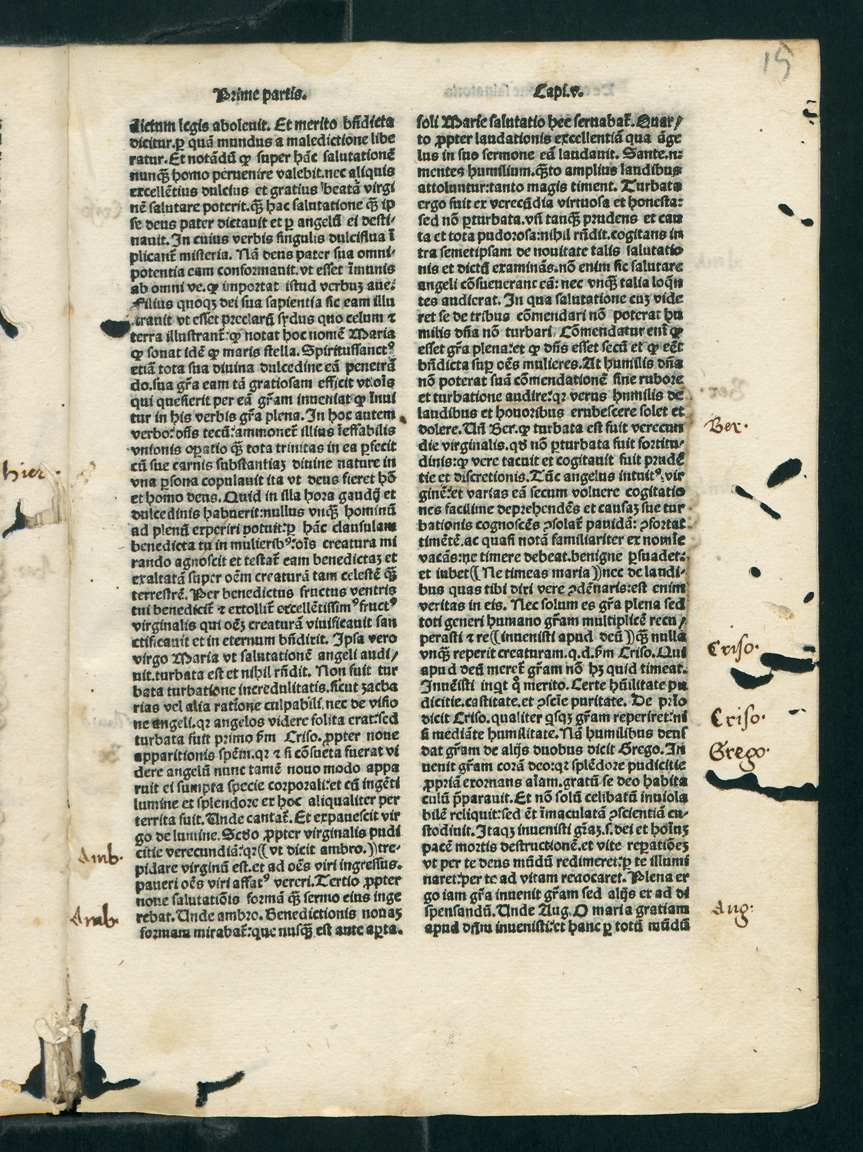 15
Prime partis.
Capi.v.
dictum legis aboleuit. Et merito bn̄dicta
dicitur.ꝑ quā mundus a maledictione libe
ratur. Et notādū ꝙ super hāc salutationē
nunꝗ̄ homo peruenire valebit.nec aliquis
excellētius dulcius et gratius beatā virgi
nē salutare poterit.ꝗ̄ hac salutatione ꝗ̄ ip
se deus pater dictauit et ꝑ angelū ei desti-
nauit. In cuius verbis singulis dulciflua ī
plicant᷑ misteria. Nā deus pater sua omni-
potentia eam consormauit.vt esset īmunis
ab omni ve.ꝙ importat istud verbuꝫ aue:
Filius quoqꝫ dei sua sapientia sic eam illu
strauit vt esset preclarū sydus quo celum ⁊
terra illustrant᷑.ꝙ notat hoc nomē Maria
ꝙ sonat idē ꝙ maris stella. Spiritussanctꝰ
etiā tota sua diuina dulcedine eā penetrā
do.sua gr̄a eam tā gratiosam efficit vt oīs
qui quesierit per eā gr̄am inueniat ꝙ īnui
tur in his verbis gr̄a plena. In hoc autem
verbo:dn̄s tecū:ammonet᷑ illius īeffabilis
vnionis oꝑatio ꝗ̄ tota trinitas in ea ꝑfecit
cū sue carnis substantiaꝫ diuine nature in
vna ꝑsona copulauit ita vt deus fieret hō
et homo deus. Quid in illa hora gaudij et
dulcedinis habuerit:nullus vnꝗ̄ hominū
ad plenū experiri potuit:ꝑ hāc clausulam
benedicta tu in mulieribꝰ:oīs creatura mi
rando agnoscit et testat᷑ eam benedictaꝫ et
exaltatā super oēm creaturā tam celestē ꝗ̄
terrestrē. Per benedictus fructus ventris
tui benedicit᷑ ⁊ extollit᷑ excellētissimꝰ fructꝰ
virginalis qui oēꝫ creaturā viuificauit san
ctificauit et in eternum bn̄dixit. Ipsa vero
virgo Maria vt salutationē angeli audi/
uit.turbata est et nihil rn̄dit. Non fuit tur
bata turbatione incredulitatis.sicut zacha
rias vel alia ratione culpabili.nec de visio
ne angeli.qꝛ angelos videre solita erat:sed
turbata fuit primo ẜm Criso. ꝓpter noue
apparitionis spēm.qꝛ ⁊ si cōsueta fuerat vi
dere angelū nunc tamē nouo modo appa
ruit ei sumpta specie corporali:et cū ingēti
lumine et splendore ex hoc aliqualiter per
territa fuit. Unde cantat᷑. Et expauescit vir
go de lumine. Scd̄o ꝓpter virginalis pudi
citie verecundiā:qꝛ(vt dicit ambro.)tre-
pidare virginū est.et ad oēs viri ingressus.
paueri oēs viri affatꝰ vereri. Tertio ꝓpter
none salutatiōis formā ꝗ̄ sermo eius inge
rebat. Unde ambro. Benedictionis nouaꝫ
formam mirabat᷑:que nusꝗ̄ est ante aꝑta.
soli Marie salutatio hec seruabat᷑. Quar/
to ꝓpter laudationis excellentiā qua āge
lus in suo sermone eā laudauit. Sante.n:
mentes humilium.ꝗ̄to amplius laudibus
attoluntur:tanto magis timent. Turbata
ergo fuit ex verecūdia virtuosa et honesta:
sed nō ꝑturbata.vn̄ tanꝗ̄ prudens et cau
ta et tota pudorosa:nihil rn̄dit.cogitans in
tra semetipsam de nouitate talis salutatio
nis et dictū examināṡ.nō enim sic salutare
angeli cōsueuerant eā: nec vnꝗ̄ talia loqn̄
tes audierat. In qua salutatione cuꝫ vide
ret se de tribus cōmendari nō poterat hu
milis dn̄a nō turbari. Cōmendatur eni᷑ ꝙ
esset gr̄a plena:et ꝙ dn̄s esset secū et ꝙ eēt
bn̄dicta suꝑ oēs mulieres. At humilis dn̄a
nō poterat suā cōmendationē sine rubore
et turbatione audire:qꝛ verus humilis de
laudibus et honoribus erubescere solet et
dolere. Un̄ Ber.ꝙ turbata est fuit verecun
die virginalis.qd̄ nō ꝑturbata fuit fortitu
dinis:ꝙ vere tacuit et cogitauit fuit prudē
tie et discretionis. Tūc angelus intuitꝰ.vir
ginē:et varias eā secum voluere cogitatio
nes facilime dep̄rehendēs et causaꝫ sue tur
bationis cognoscēs ꝯsolat᷑ pauidā: ꝯfortat
timētē.ac quasi notā familiariter ex noīe
vacās:ne timere debeat.benigne ꝑsuadet:
et iubet(Ne timeas maria)nec de laudi-
bus quas tibi diri vere ꝯdēnaris:est enim
veritas in eis. Nec solum es gr̄a plena sed
toti generi humano gr̄am multiplicē recu/
perasti ⁊ re(inuenisti apud deū)ꝗ̄ nulla
vnꝗ̄ reperit creaturam.q.d.ẜm Criso. Qui
apud deū meret᷑ gr̄am nō hꝫ quid timeat.
Inuēisti inqt ꝗ̊ merito. Certe hūilitate pu
dicitie.castitate.et ꝯscie puritate. De prīo
dicit Criso. qualiter qsꝗꝫ gr̄am reperiret:ni
si mediāte humilitate. Nā humilibus deus
dat gr̄am de alijs duobus dicit Grego. In
uenit gr̄am corā deo:qꝛ splēdore pudicitie
ꝓpriā exornans aīam.gratū se deo habita
culū p̄parauit. Et nō solū celibatū inuiola
bilē reliquit:sed ēt īmaculatā ꝯscientiā cu-
stodiuit. Itaqꝫ inuenisti gr̄aꝫ.ṡ.dei et hoīuꝫ
pacē mortis destructionē.et vite reꝑatiōeꝫ
vt per te deus mūdū redimeret:ꝑ te illumi
naret:per te ad vitam reuocaret. Plena er
go iam gr̄a inuenit gr̄am sed alijs et ad di
spensandū. Unde Aug. O maria gratiam
apud dn̄m inuenisti:et hanc ꝑ totū mūdū
hier.
Amb.
Amb.
Ber.
Criso.
Criso.
Grego.
Aug.